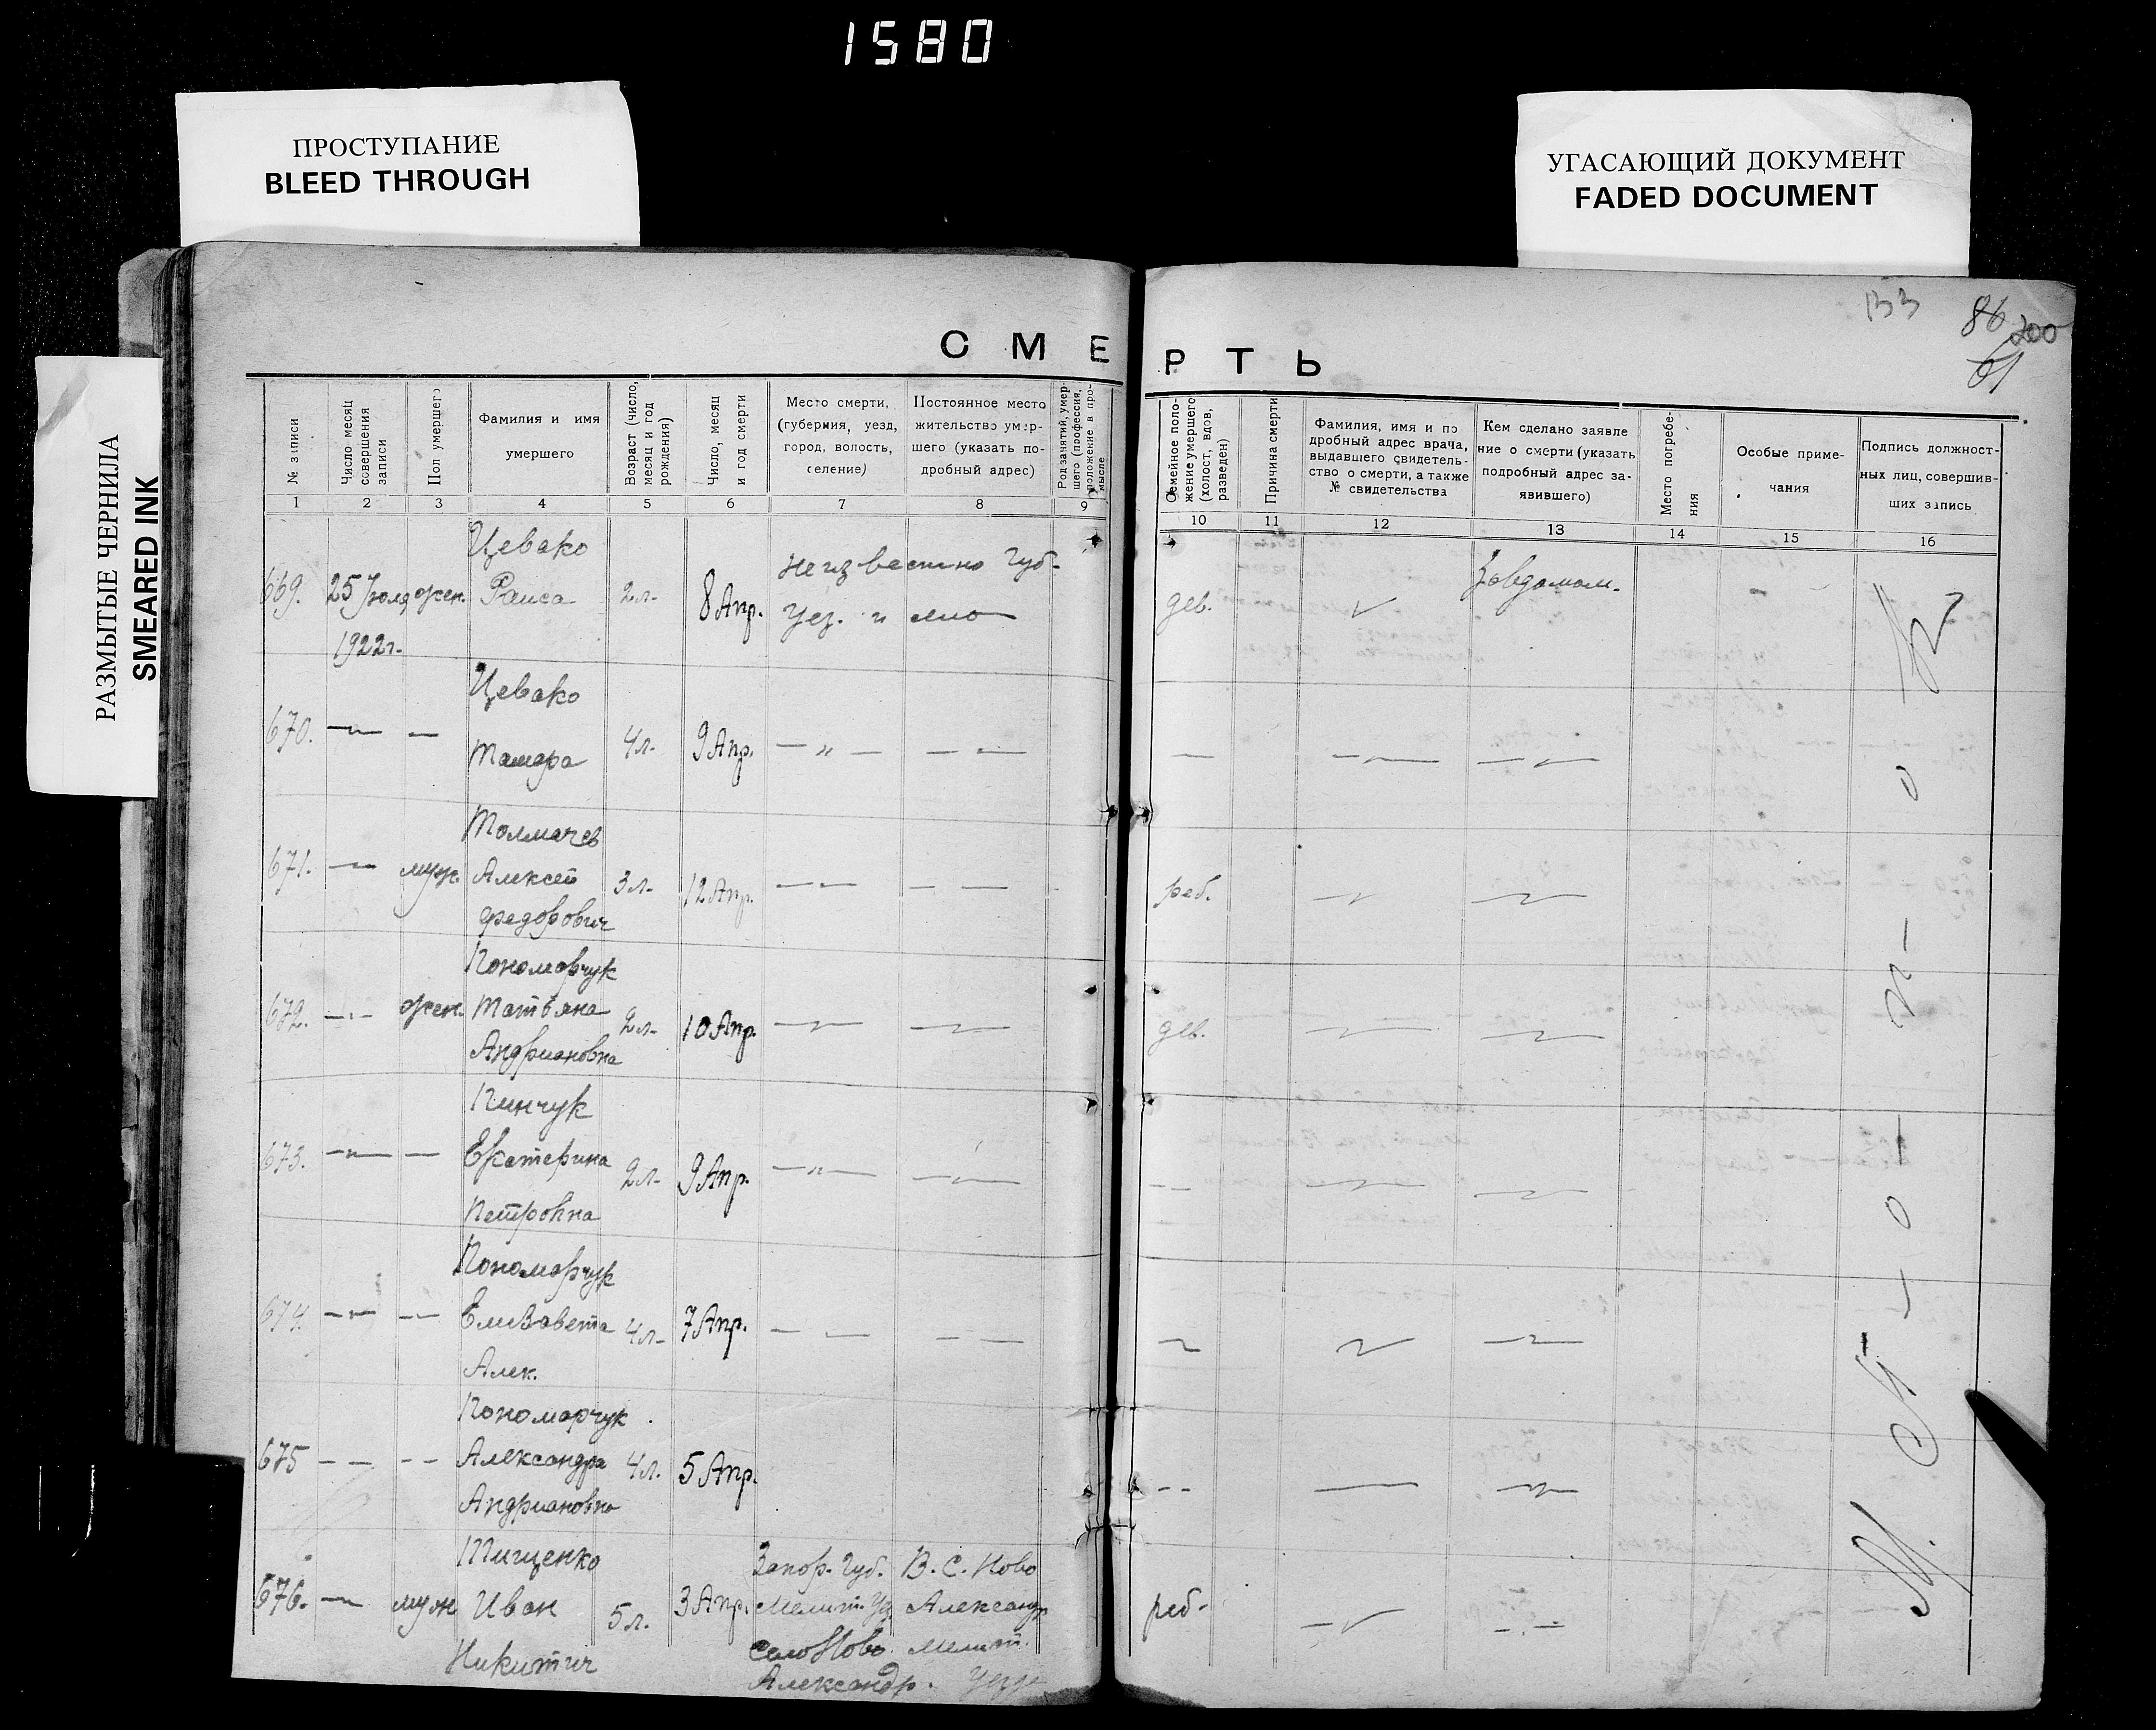 1580
ПРОСТУПАНИЕ
BLEED THROUGH
УГАСАЮЩИЙ ДОКУМЕНТ
FADED DOCUMENT
РАЗМЫТЫЕ ЧЕРНИЛА
SMEARED INK
133
86
200
61
СМЕРТЬ
№ записи
Число месяц
совершения
записи
Пол умершего
Фамилия и имя
умершего
Возраст (число,
месяц и год
рождения)
Число, месяц
и год смерти
Место смерти,
(губерния, уезд,
город, волость,
селение)
Постоянное место
жительство умер-
шего (указать по-
дробный адрес)
Род занятий, умер-
шего (профессия,
положение в про-
мысле
Семейное поло-
жение умершего
(холост, вдов,
разведен)
Причина смерти
Фамилия, имя и по
дробный адрес врача,
выдавшего свидетель-
ство о смерти, а также
№ свидетельства
Кем сделано заявле
ние о смерти (указать
подробный адрес за-
явившего)
Место погребе-
ния
Особые приме-
чания
Подпись должност-
ных лиц, совершив-
ших запись
1 2 3 4 5 6 7 8 9 10 11 12 13 14 15 16
669. 25 Июля жен. Цевако
Раиса 2л. 8 Апр. Неизвестно Губ-
Уез. и
1922г.
дев. Завдомом.
670. — " — — Цевако
Тамара 4л. 9 Апр. — " — — —
671. — муж. Толмачев
Алексей 3л. 12 Апр. — — — —
Федорович
реб.
672. — " — жен. Пономарчук
Татьяна 2л. 10 Апр.
Андриановна
дев.
673. — " — — Пинчук
Екатерина 2л. 9 Апр. — " —
Петровна
674. — " — — Пономарчук
Елизавета 4л. 7 Апр. — — — —
Алек.
675 — — — — Пономарчук
Александра 4л. 5 Апр.
Андриановна
676. — муж Тищенко
Иван 5л. 3 Апр.
Никитич
Запор. Губ.
Мелит. Уз
Село Ново
Александр.
В. С. Ново
Александр
Мелит.
Уезда
реб.